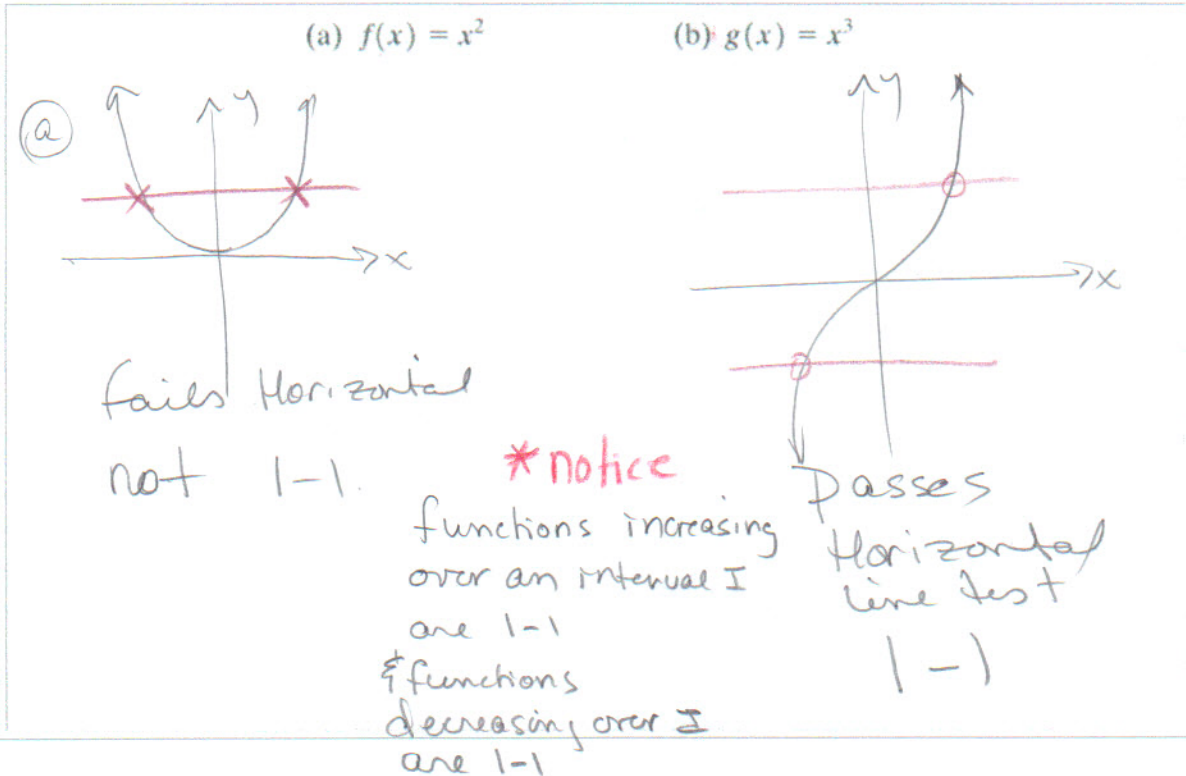 (a) f(x) = x²
(b) g(x) = x³
a
y
x
fails Horizontal
not 1-1.
y
x
passes
Horizontal
line test
1-1
*notice
functions increasing
over an interval I
are 1-1
& functions
decreasing over I
are 1-1